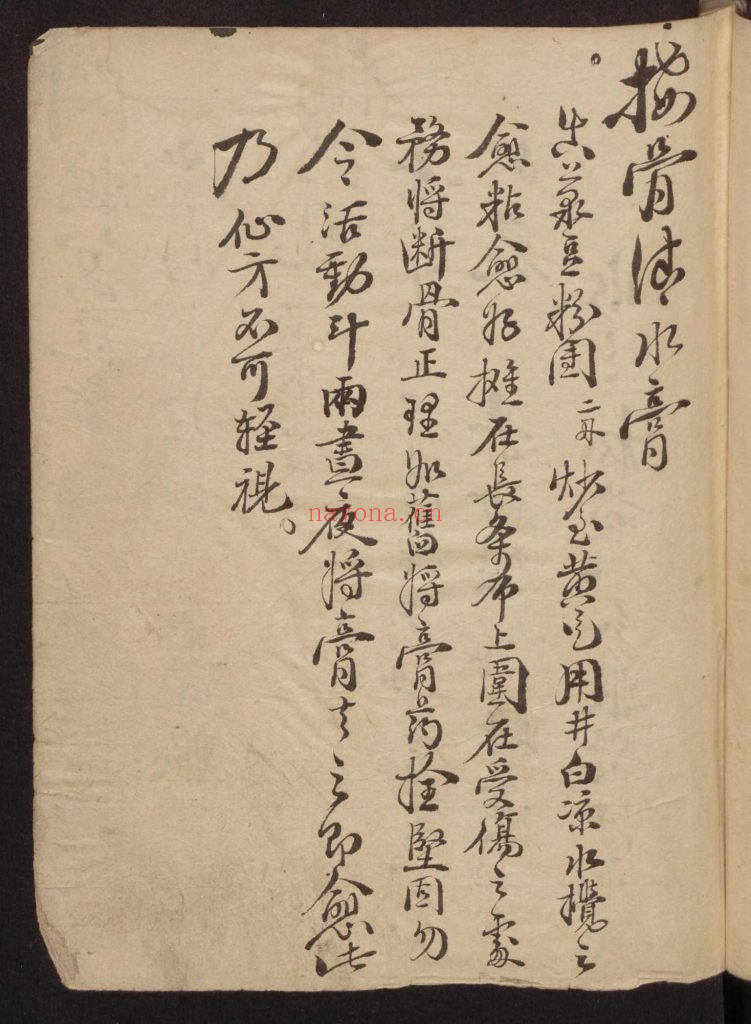 接骨清水膏
真菉豆粉團二丹炒至黃色用井白凉水攪之
愈粘愈好攤在長条布上圍在受傷之處
務将断骨正理如舊将膏药拴堅固勿
令活動斗兩晝夜将膏去之即愈此
乃仙方不可輕視。
nayona.cn